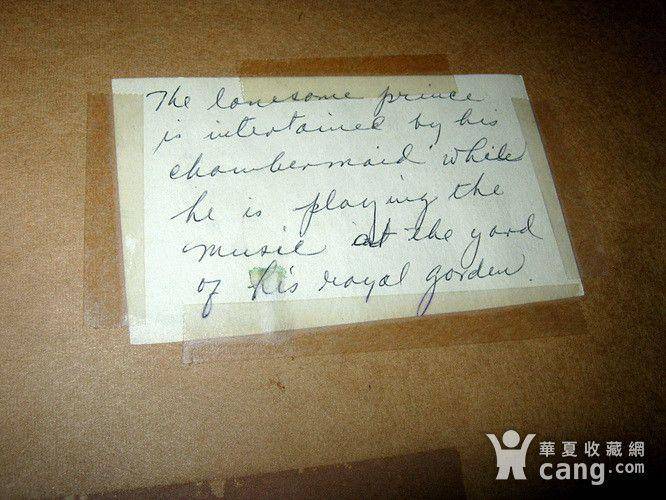 The lonesome prince
is intertained by his
chambermaid while
he is playing the
music at the yard
of his royal garden.
華夏收藏網
cang.com